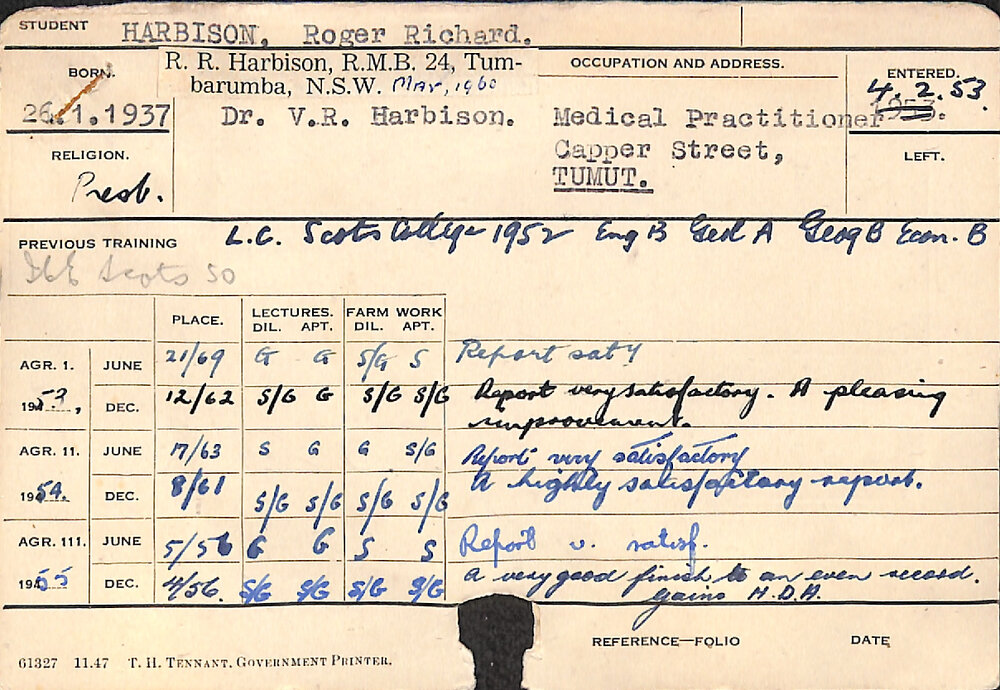 STUDENT HARBISON, Roger Richard.
BORN. R. R. Harbison, R.M.B. 24, Tum-
barumba, N.S.W. Mar, 1960
OCCUPATION AND ADDRESS.
ENTERED.
4.2.53.
1953.
26.1.1937 Dr. V.R. Harbison. Medical Practitioner
Capper Street,
TUMUT.
RELIGION.
Presb.
LEFT.
PREVIOUS TRAINING L.C. Scots College 1952 Eng B Geol A Geog B Econ. B
Scots 50
PLACE. LECTURES. FARM WORK
DIL. APT. DIL. APT.
AGR. 1. JUNE 21/69 G G S/G S Report saty
1953, DEC. 12/62 S/G G S/G S/G Report very satisfactory. A pleasing
improvement.
AGR. 11. JUNE 17/63 S G G S/G Report very satisfactory
1954. DEC. 8/61 S/G S/G S/G S/G A highly satisfactory report.
AGR. 111. JUNE 5/56 G G S S Report v. satisf.
1955 DEC. 4/56. S/G S/G S/G S/G A very good finish to an even record.
gains H.D.A.
REFERENCE—FOLIO DATE
61327 11.47 T. H. TENNANT, GOVERNMENT PRINTER.